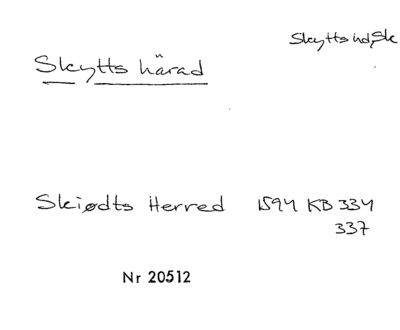 Skytts hd, Sk
Skytts härad
Skiødts Herred 1594 KB 334
337
Nr 20512